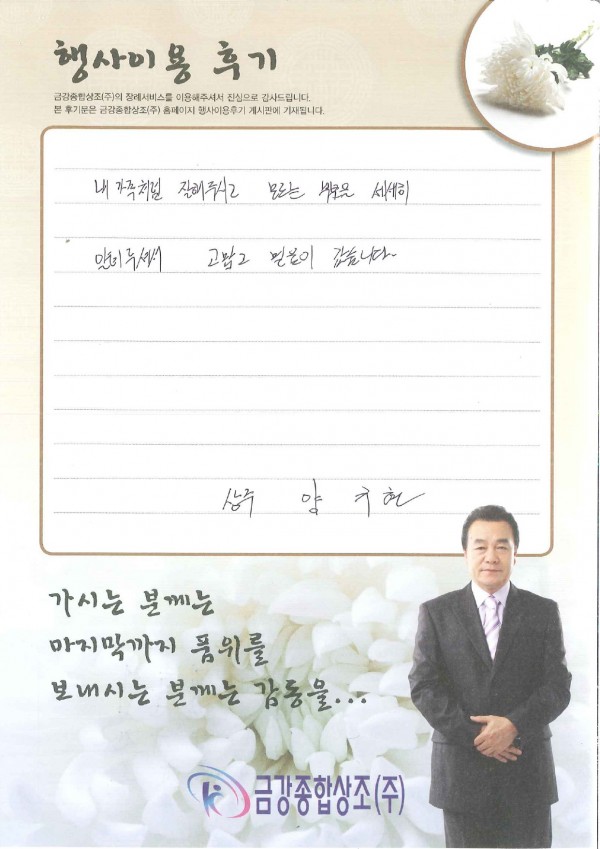 행사이용 후기
금강종합상조(주)의 장례서비스를 이용해주셔서 진심으로 감사드립니다.
본 후기문은 금강종합상조(주) 홈페이지 행사이용후기 게시판에 기재됩니다.
내 가족처럼 잘해주시고 모르는 부분은 세세히
알려주셔서 고맙고 믿음이 갔습니다~
상주 양 현
가시는 분께는
마지막까지 품위를
보내시는 분께는 감동을...
금강종합상조(주)